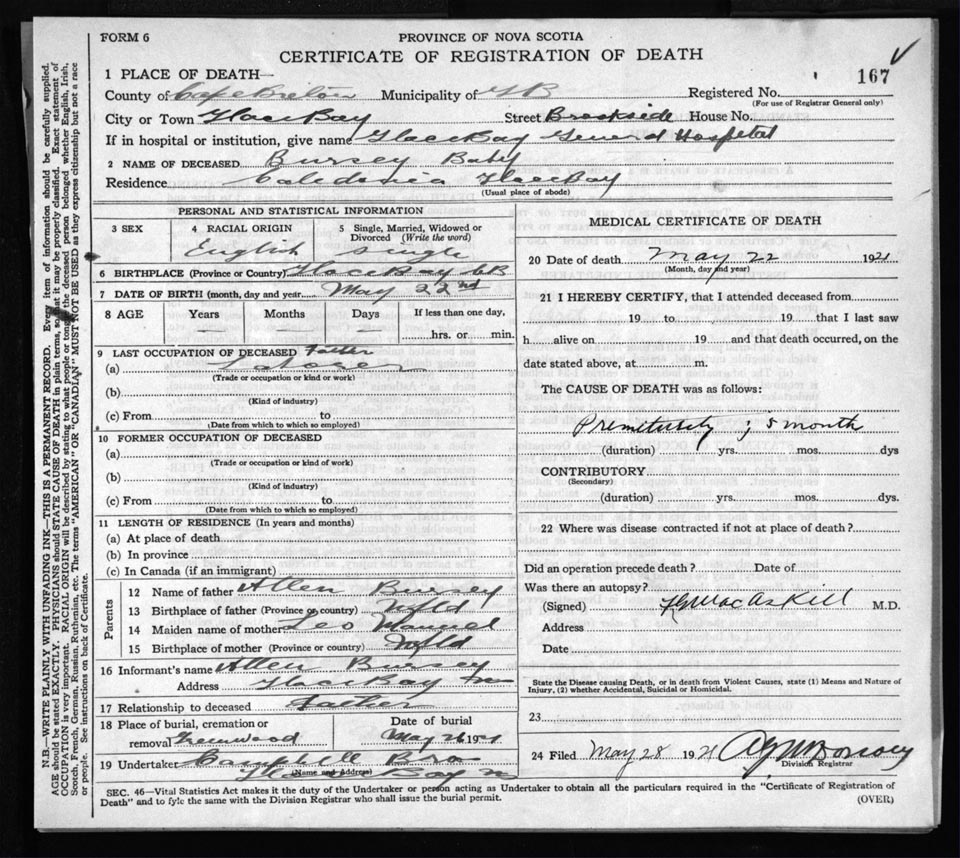 FORM 6
PROVINCE OF NOVA SCOTIA
CERTIFICATE OF REGISTRATION OF DEATH
167
1 PLACE OF DEATH—
County of Cape Breton Municipality of G B Registered No.
(For use of Registrar General only)
City or Town Glace Bay Street Brookside House No.
If in hospital or institution, give name Glace Bay General Hospital
2 NAME OF DECEASED Bursey Baby
Residence Caledonia Glace Bay
(Usual place of abode)
PERSONAL AND STATISTICAL INFORMATION
3 SEX 4 RACIAL ORIGIN 5 Single, Married, Widowed or Divorced (Write the word)
English Single
6 BIRTHPLACE (Province or Country) Glace Bay CB
7 DATE OF BIRTH (month, day and year May 22nd
8 AGE Years Months Days If less than one day,
hrs. or min.
9 LAST OCCUPATION OF DECEASED Father
(a) Laborer
(Trade or occupation or kind or work)
(b)
(Kind of industry)
(c) From to
(Date from which to which so employed)
10 FORMER OCCUPATION OF DECEASED
(a)
(Trade or occupation or kind of work)
(b)
(Kind of industry)
(c) From to
(Date from which to which so employed)
11 LENGTH OF RESIDENCE (In years and months)
(a) At place of death
(b) In province
(c) In Canada (if an immigrant)
Parents
12 Name of father Allen Bursey
13 Birthplace of father (Province or country) Nfld
14 Maiden name of mother Leo Manuel
15 Birthplace of mother (Province or country) Nfld
16 Informant's name Allen Bursey
Address Glace Bay
17 Relationship to deceased Father
18 Place of burial, cremation or removal Greenwood Date of burial May 26 1921
19 Undertaker Campbell Bro
(Name and Address) Glace Bay
MEDICAL CERTIFICATE OF DEATH
20 Date of death May 22 1921
(Month, day and year)
21 I HEREBY CERTIFY, that I attended deceased from
19 to 19 that I last saw
h alive on 19 and that death occurred, on the
date stated above, at m.
The CAUSE OF DEATH was as follows:
Prematurity ; 5 month
(duration) yrs. mos. dys
CONTRIBUTORY
(Secondary)
(duration) yrs. mos. dys.
22 Where was disease contracted if not at place of death?
Did an operation precede death? Date of
Was there an autopsy?
(Signed) MacAskill M.D.
Address
Date
State the Disease Causing Death, or in death from Violent Causes, state (1) Means and Nature of
Injury, (2) whether Accidental, Suicidal or Homicidal.
23
24 Filed May 28 1921
Division Registrar
SEC. 46—Vital Statistics Act makes it the duty of the Undertaker or person acting as Undertaker to obtain all the particulars required in the "Certificate of Registration of
Death" and to fyle the same with the Division Registrar who shall issue the burial permit.
(OVER)
N.B.—WRITE PLAINLY WITH UNFADING INK—THIS IS A PERMANENT RECORD. Every item of information should be carefully supplied.
AGE should be stated EXACTLY. PHYSICIANS should STATE CAUSE OF DEATH in plain terms, so that it may be properly classified. Exact statement of
OCCUPATION is very important. RACIAL ORIGIN will be described by stating to what people or tongue the deceased person belonged whether English, Irish,
Scotch, French, German, Russian, Ruthenian, etc. The terms "AMERICAN" OR "CANADIAN" MUST NOT BE USED as they express citizenship but not a race
or people. See instructions on back of Certificate.